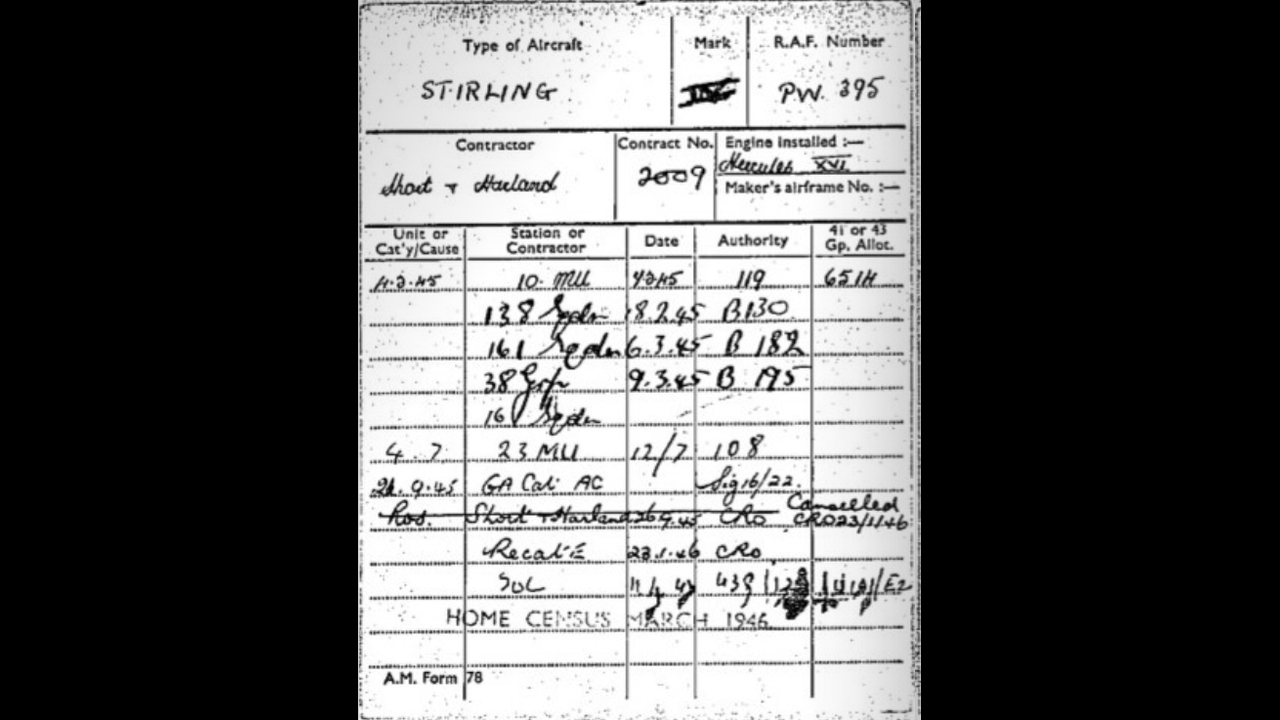 Type of Aircraft Mark R.A.F. Number
STIRLING PW. 395
Contractor Contract No. Engine installed :—
Short & Harland 2009 Hercules XVI
Maker's airframe No. :—
Unit or Cat'y/Cause Station or Contractor Date Authority 41 or 43 Gp. Allot.
4.2.45 10 MU 4.2.45 119 651H
138 Sqdn 18.2.45 B130
161 Sqdn 6.3.45 B 182
38 Grp 9.3.45 B 195
161 Sqdn
4. 7 23 MU 12/7 108
21.9.45 GA Cat AC Sig 16/22.
Ros. Short & Harland 26.9.45 CRO Cancelled CRO 23/1/46
Recat E 23.1.46 CRO
SOL 439 E2
HOME CENSUS MARCH 1946
A.M. Form 78